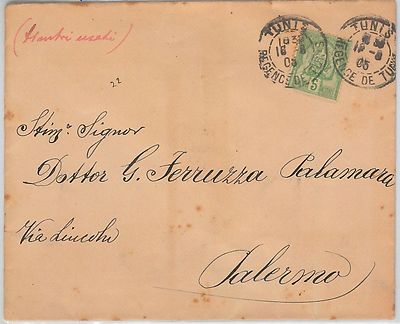 (Mantri usati)
22
TUNIS
18 30
18
05
REGENCE DE
5
TUNIS
18 -8
05
REGENCE DE TUNIS
Stimr. Signor
Dottor G. Ferruzza Palamara
Via Lincoln
Palermo